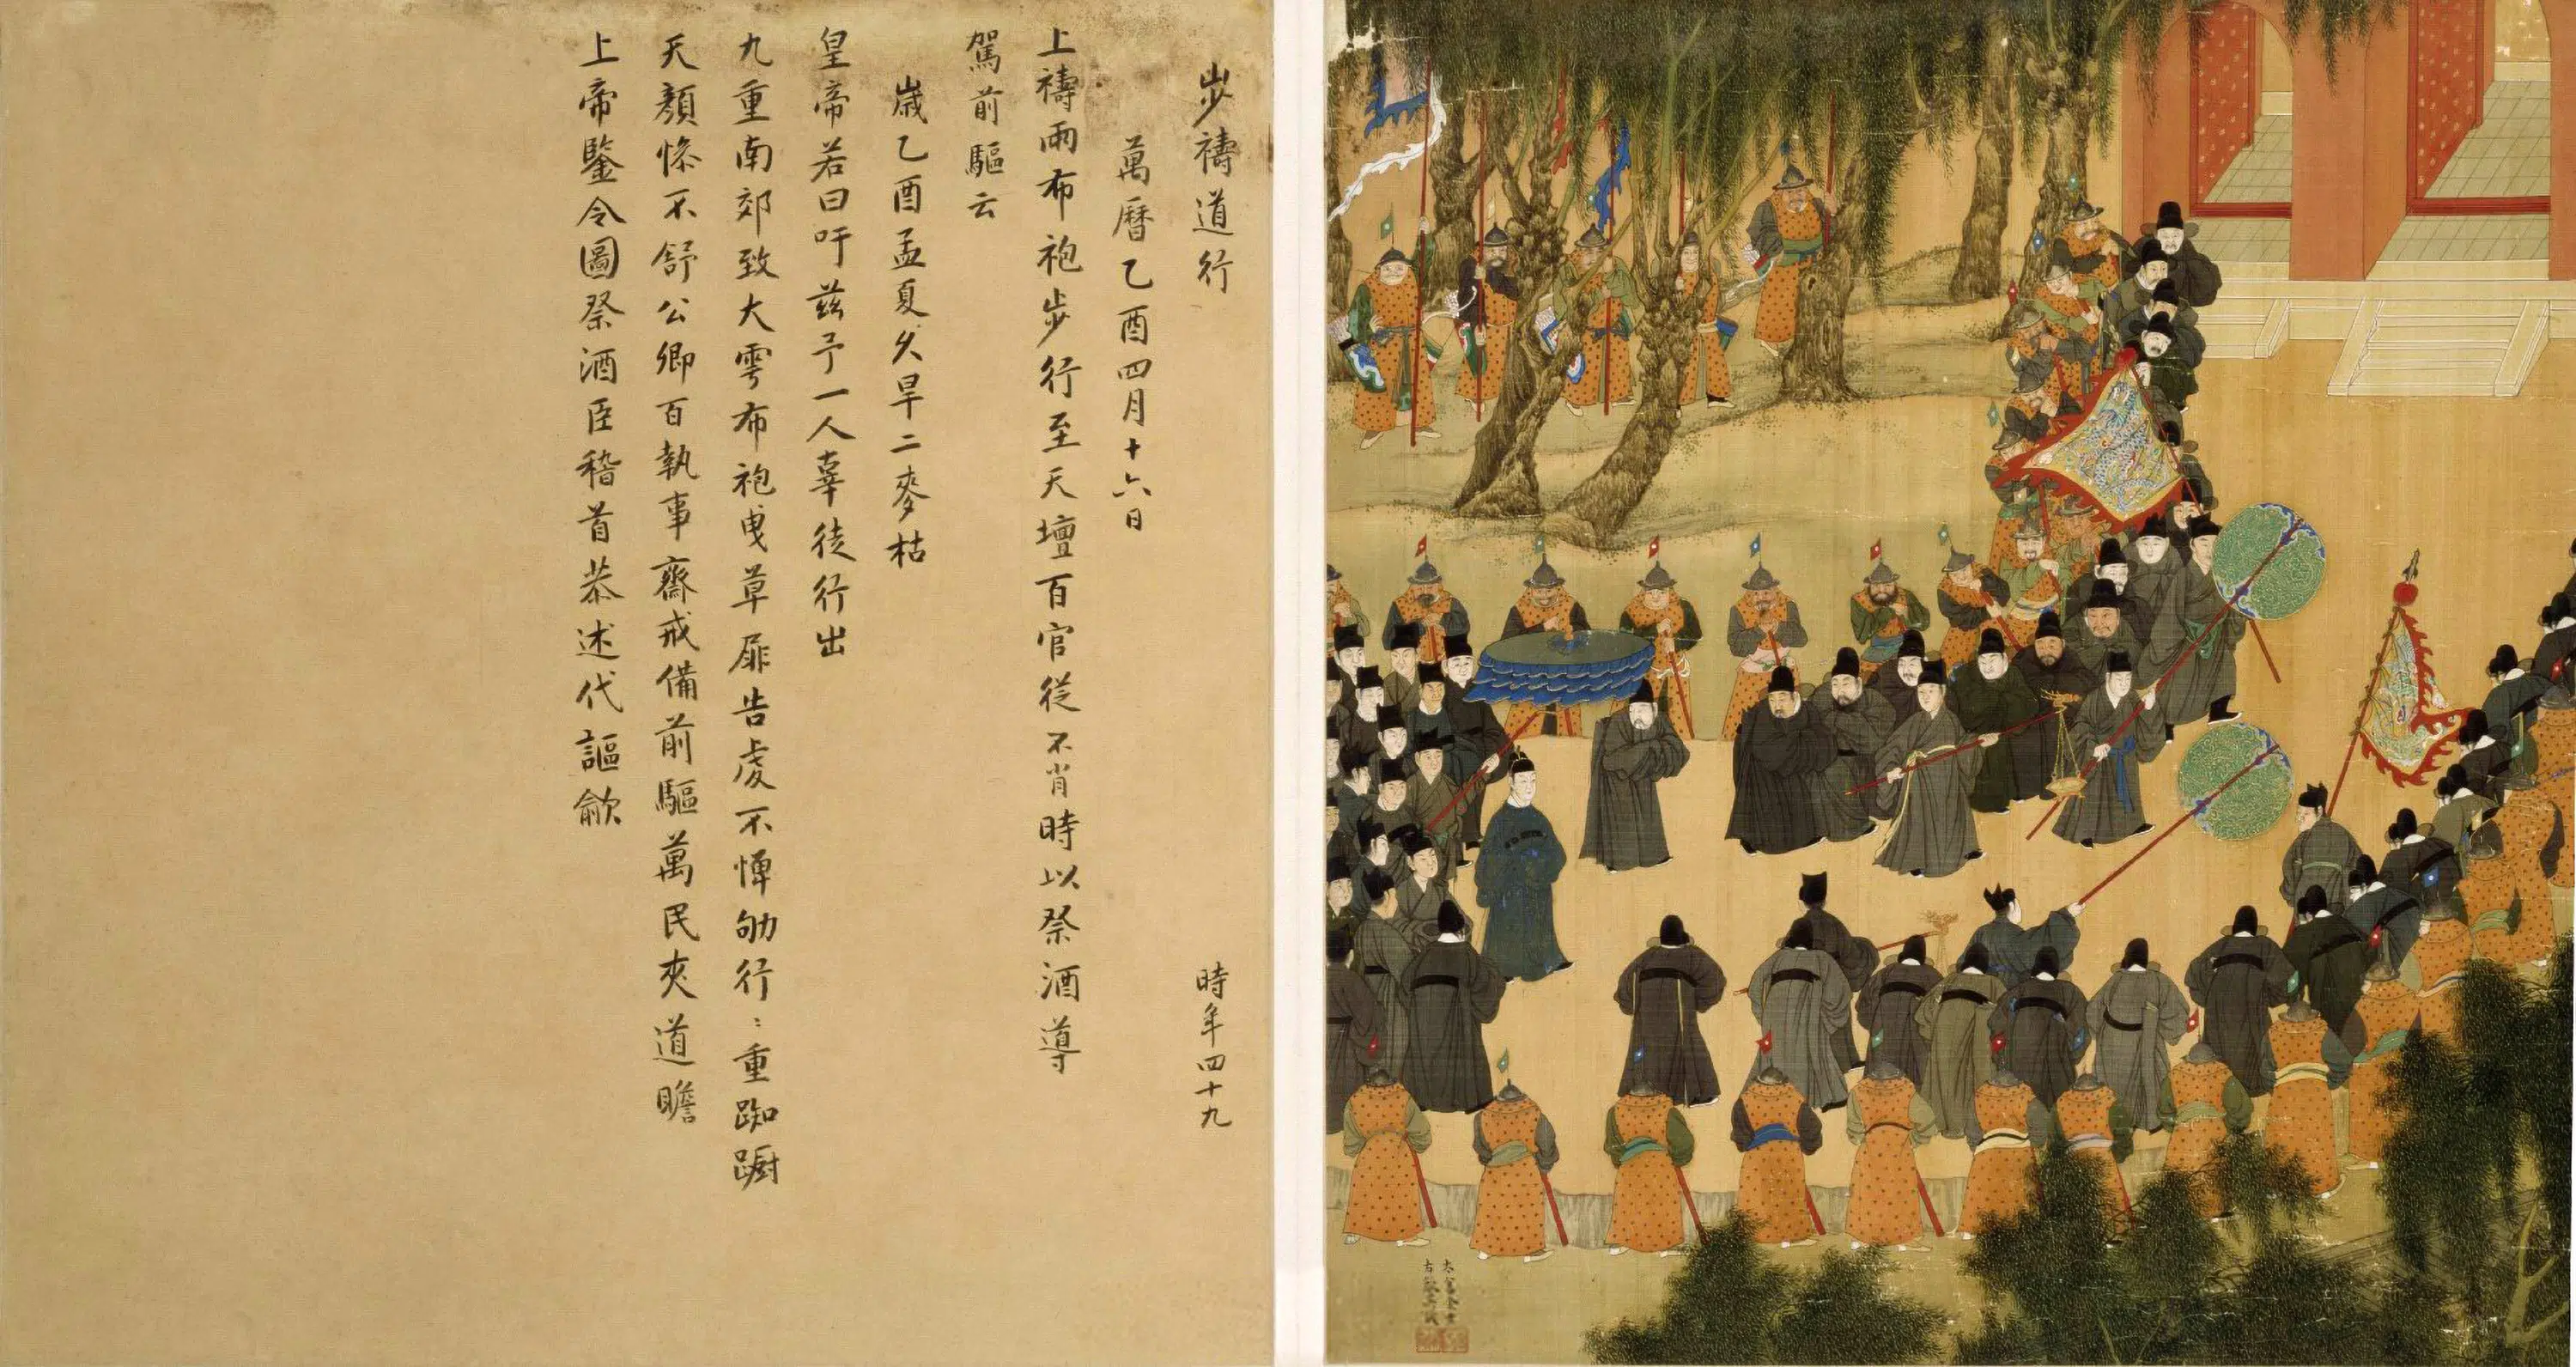 步禱道行
時年四十九
萬曆乙酉四月十六日
上禱雨布袍步行至天壇百官從不肖時以祭酒導
駕前驅云
歲乙酉孟夏久旱二麥枯
皇帝若曰吁茲予一人辜徒行出
九重南郊致大雩布袍曳草屝告虔不憚劬行〻重踟躕
天顏慘不舒公卿百執事齋戒備前驅萬民夾道瞻
上帝鑒令圖祭酒臣稽首恭述代謳歈